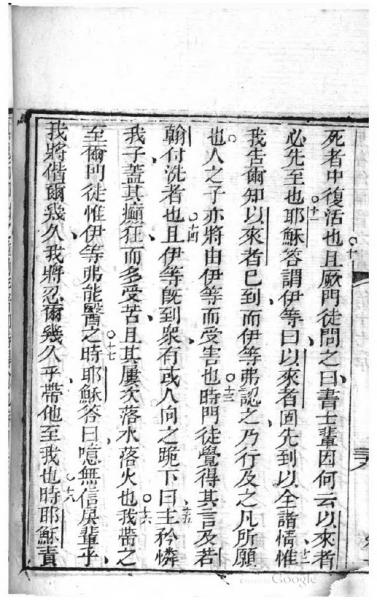 死者中復活也十且厥門徒問之曰書士輩因何云以來者
必先至也十一耶穌答謂伊等曰以來者固先到以全諸情惟十二
我告爾知以來者已到而伊等弗認之乃行及之凡所願
也人之子亦將由伊等而受害也十三時門徒覺得其言及若
翰付洗者也十四且伊等既到衆有或人向之跪下曰十五主矜憐
我子蓋其癲狂而多受苦且其屢次落水落火也十六我帶之
至爾門徒惟伊等弗能醫之十七時耶穌答曰噫無信戾輩乎
我將偕爾幾久我將忍爾幾久乎帶他至我也十八時耶穌責
Google